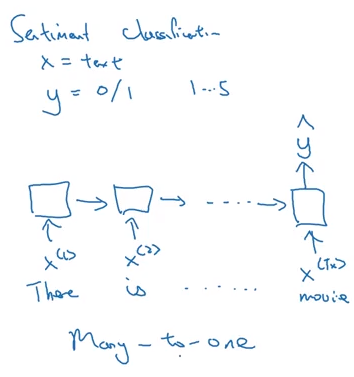 Sentiment Classification
x = text
y = 0/1 1...5
ŷ
x<1> x<2> x<Tx>
There is ...... movie
Many-to-one